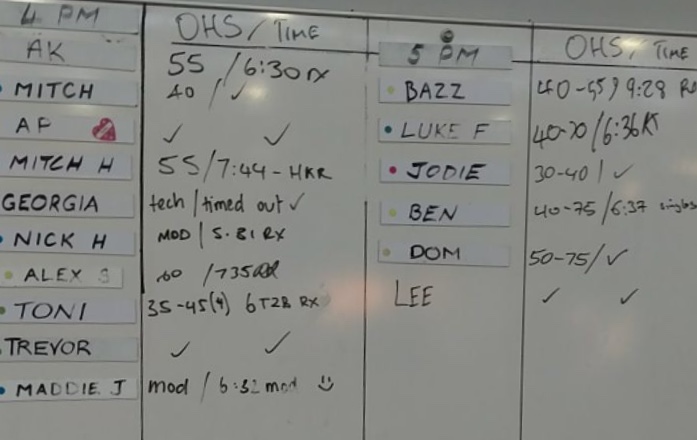 4 PM OHS/TIME
AK 55 / 6:30 rx
MITCH 40 / ✓
AP ✓ ✓
MITCH H 55/7:44 - HKR
GEORGIA tech / timed out ✓
NICK H MOD | 5.31 RX
ALEX S 60 / 735
TONI 35-45(4) 6T28 RX
TREVOR ✓ ✓
MADDIE J mod / 6:32 mod
5 PM OHS/TIME
BAZZ 40-55 / 9:28
LUKE F 40-70 / 6:36
JODIE 30-40 / ✓
BEN 40-75 / 6:37 singles
DOM 50-75/ ✓
LEE ✓ ✓